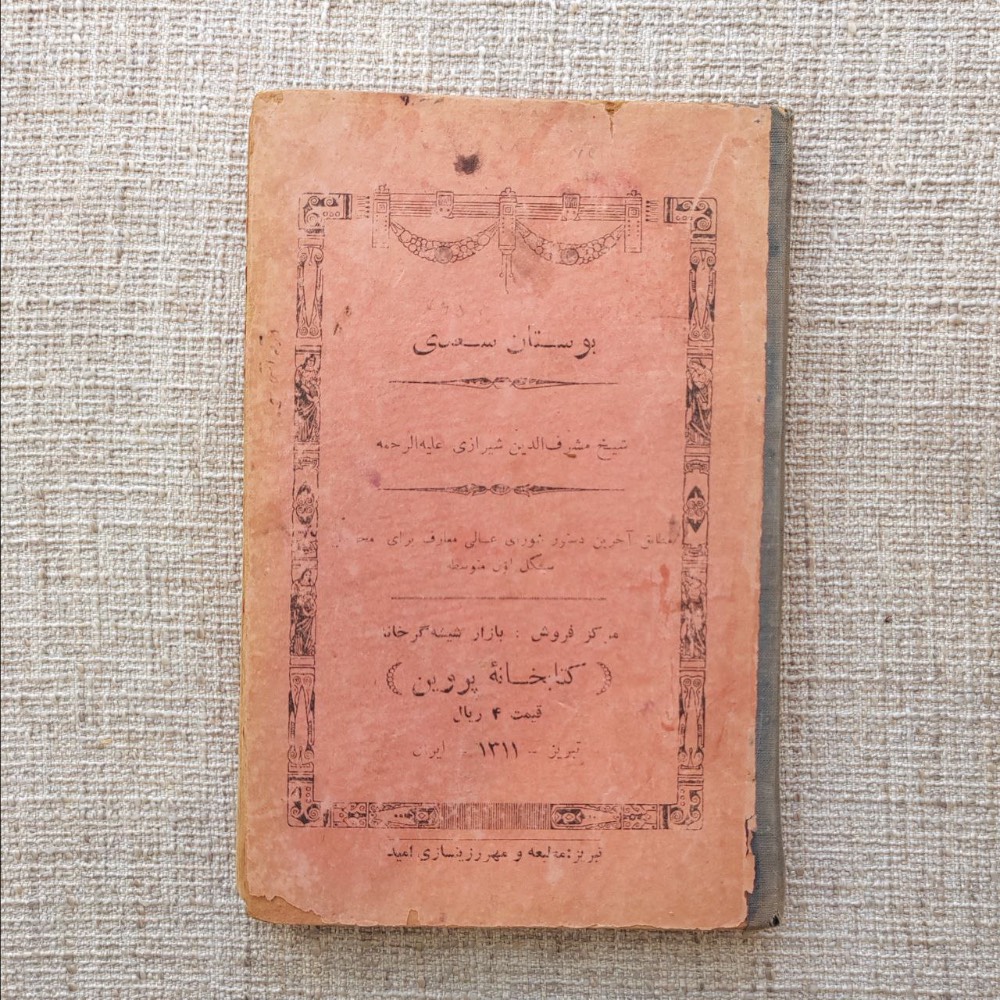 بوستان سعدی
شیخ مشرف‌الدین شیرازی علیه‌الرحمه
مطابق آخرین دستور شورای عالی معارف برای
سیکل اول متوسطه
مرکز فروش : بازار شیشه‌گرخانه
(کتابخانهٔ پروین)
قیمت ۴ ریال
تبریز - ۱۳۱۱ - ایران
تبریز: مطبعه و مهر رزینسازی امید